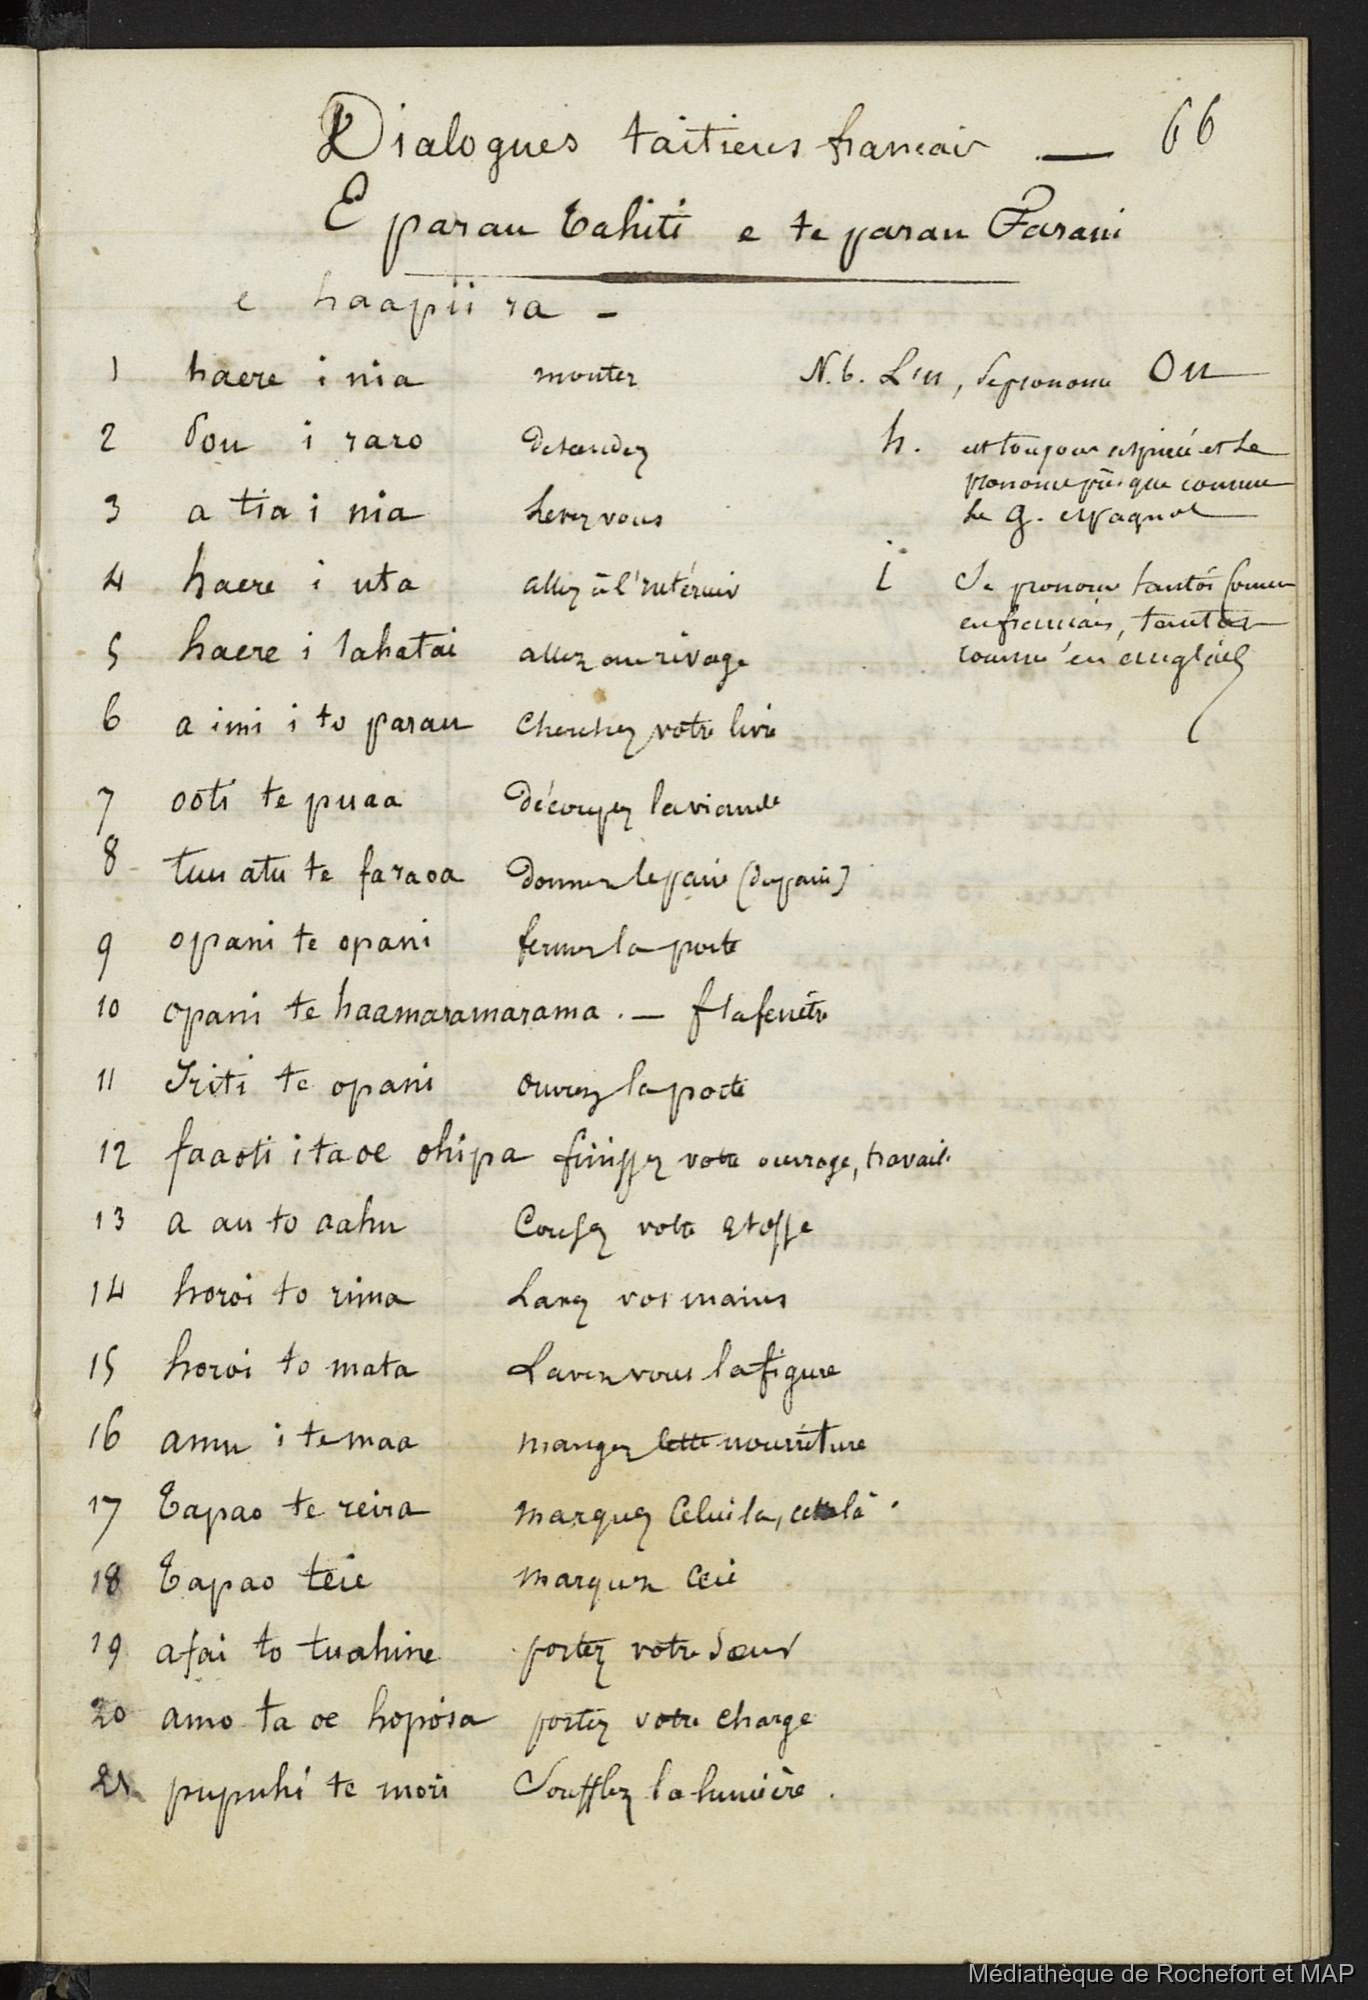 Dialogues taitiens francais — 66
E parau Tahiti e te parau Farani
e haapii ra -
1 haere i nia montez
2 Sou i raro descendez
3 a tia i nia Levez vous
4 haere i uta allez à l'intérieur
5 haere i tahatai allez au rivage
6 a imi i to parau Cherchez votre livre
7 ooti te puaa Découpez la viande
8 tuu atu te faraoa Donnez le pain (du pain)
9 opani te opani fermez la porte
10 opani te haamaramarama . — f la fenêtre
11 Iriti te opani ouvrez la porte
12 faaoti i ta oe ohipa finissez votre ouvrage, travail.
13 a au to aahu Cousez votre etoffe
14 horoi to rima Lavez vos mains
15 horoi to mata Lavez vous la figure
16 amu i te maa mangez cette nourriture
17 Tapao te reira marquez Celui la, cela
18 Tapao teie marquez Ceci
19 afai to tuahine portez votre Soeur
20 amo ta oe hopoia portez votre charge
21 pupuhi te mori Soufflez la lumière .
N.b. L'u, se prononce Ou
h. est toujours aspirée et se
prononce presque comme
le g. espagnol
i Se prononce tantôt comme
en francais, tantôt
comme en anglais
Médiathèque de Rochefort et MAP